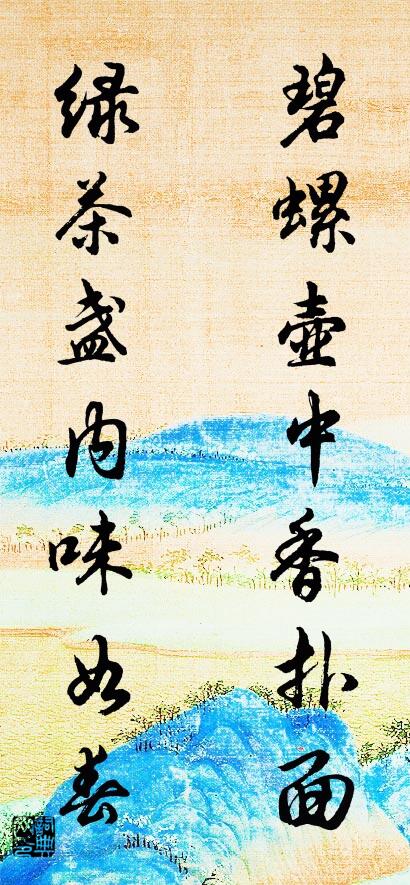 碧螺壶中香扑面
绿茶盏内味如春